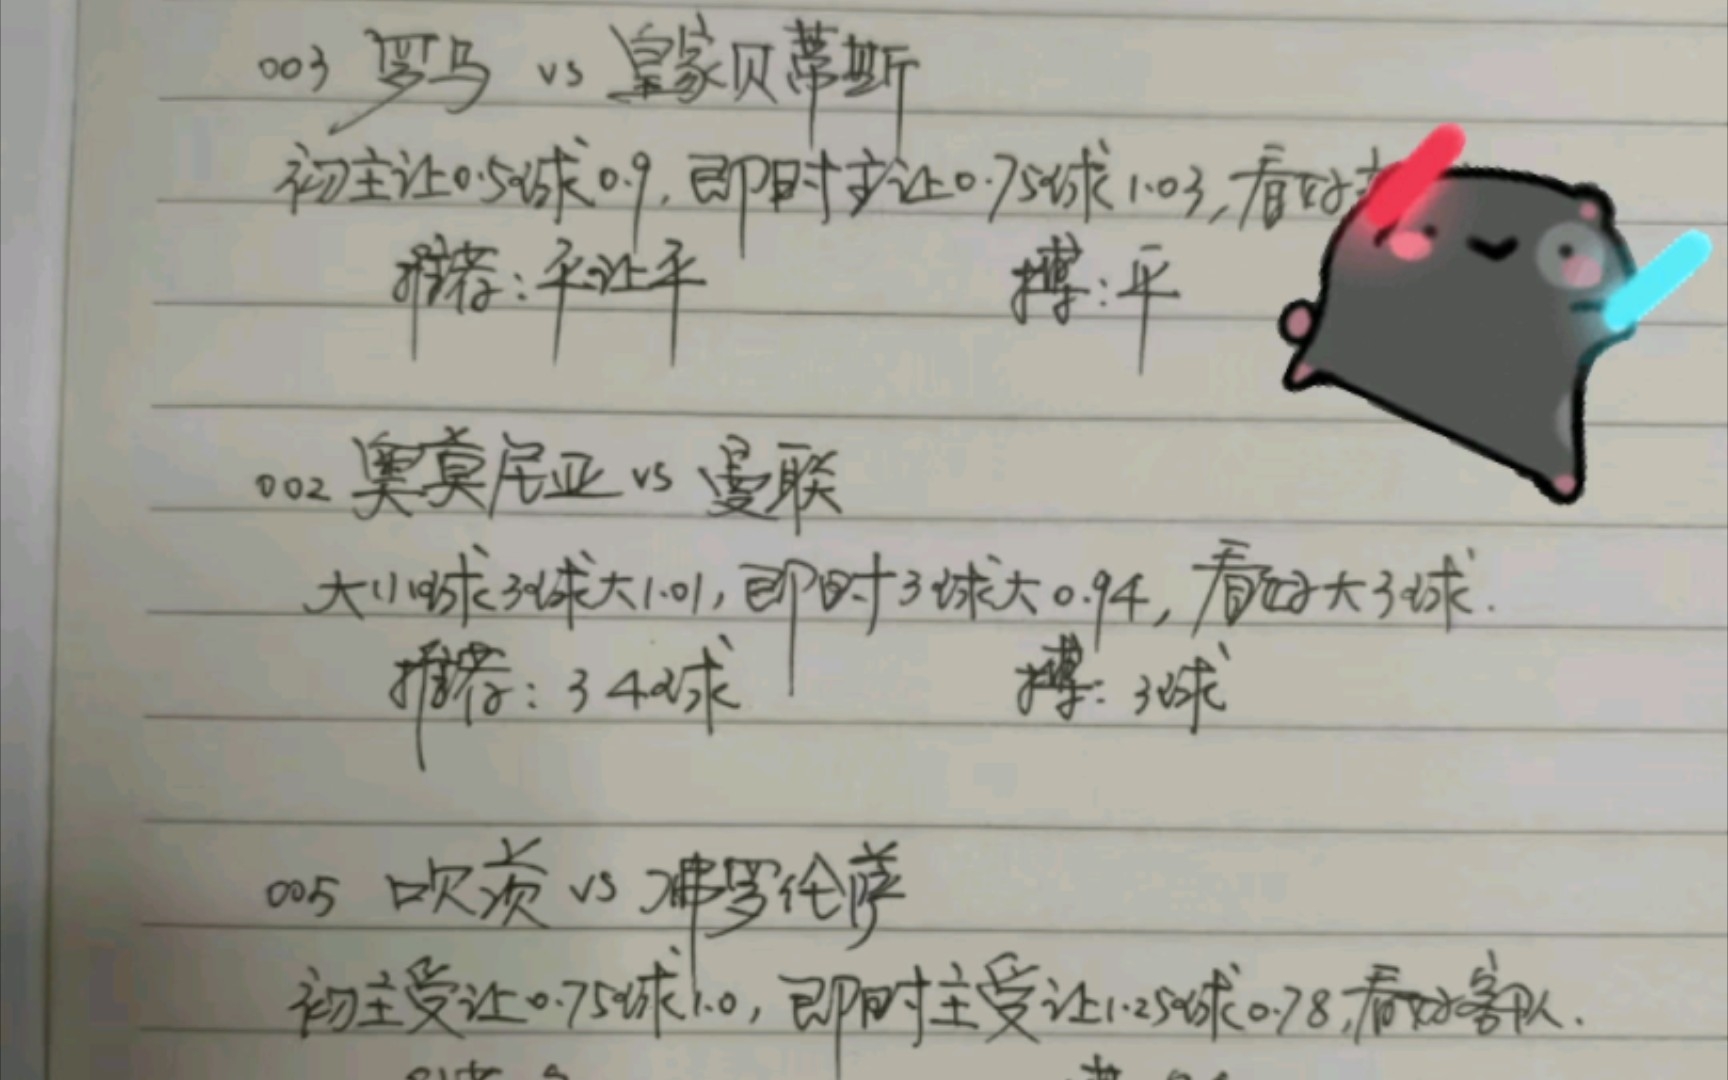 003 罗马 vs 皇家贝蒂斯
初主让0.5球0.9,即时主让0.75球1.03,看好
推荐:平让平 搏:平
002 奥莫尼亚 vs 曼联
大小球3球大1.01,即时3球大0.94,看好大3球.
推荐:3 4球 搏:3球
005 吹茨 vs 沸罗伦萨
初主受让0.75球1.0,即时主受让1.25球0.78,看好客队.